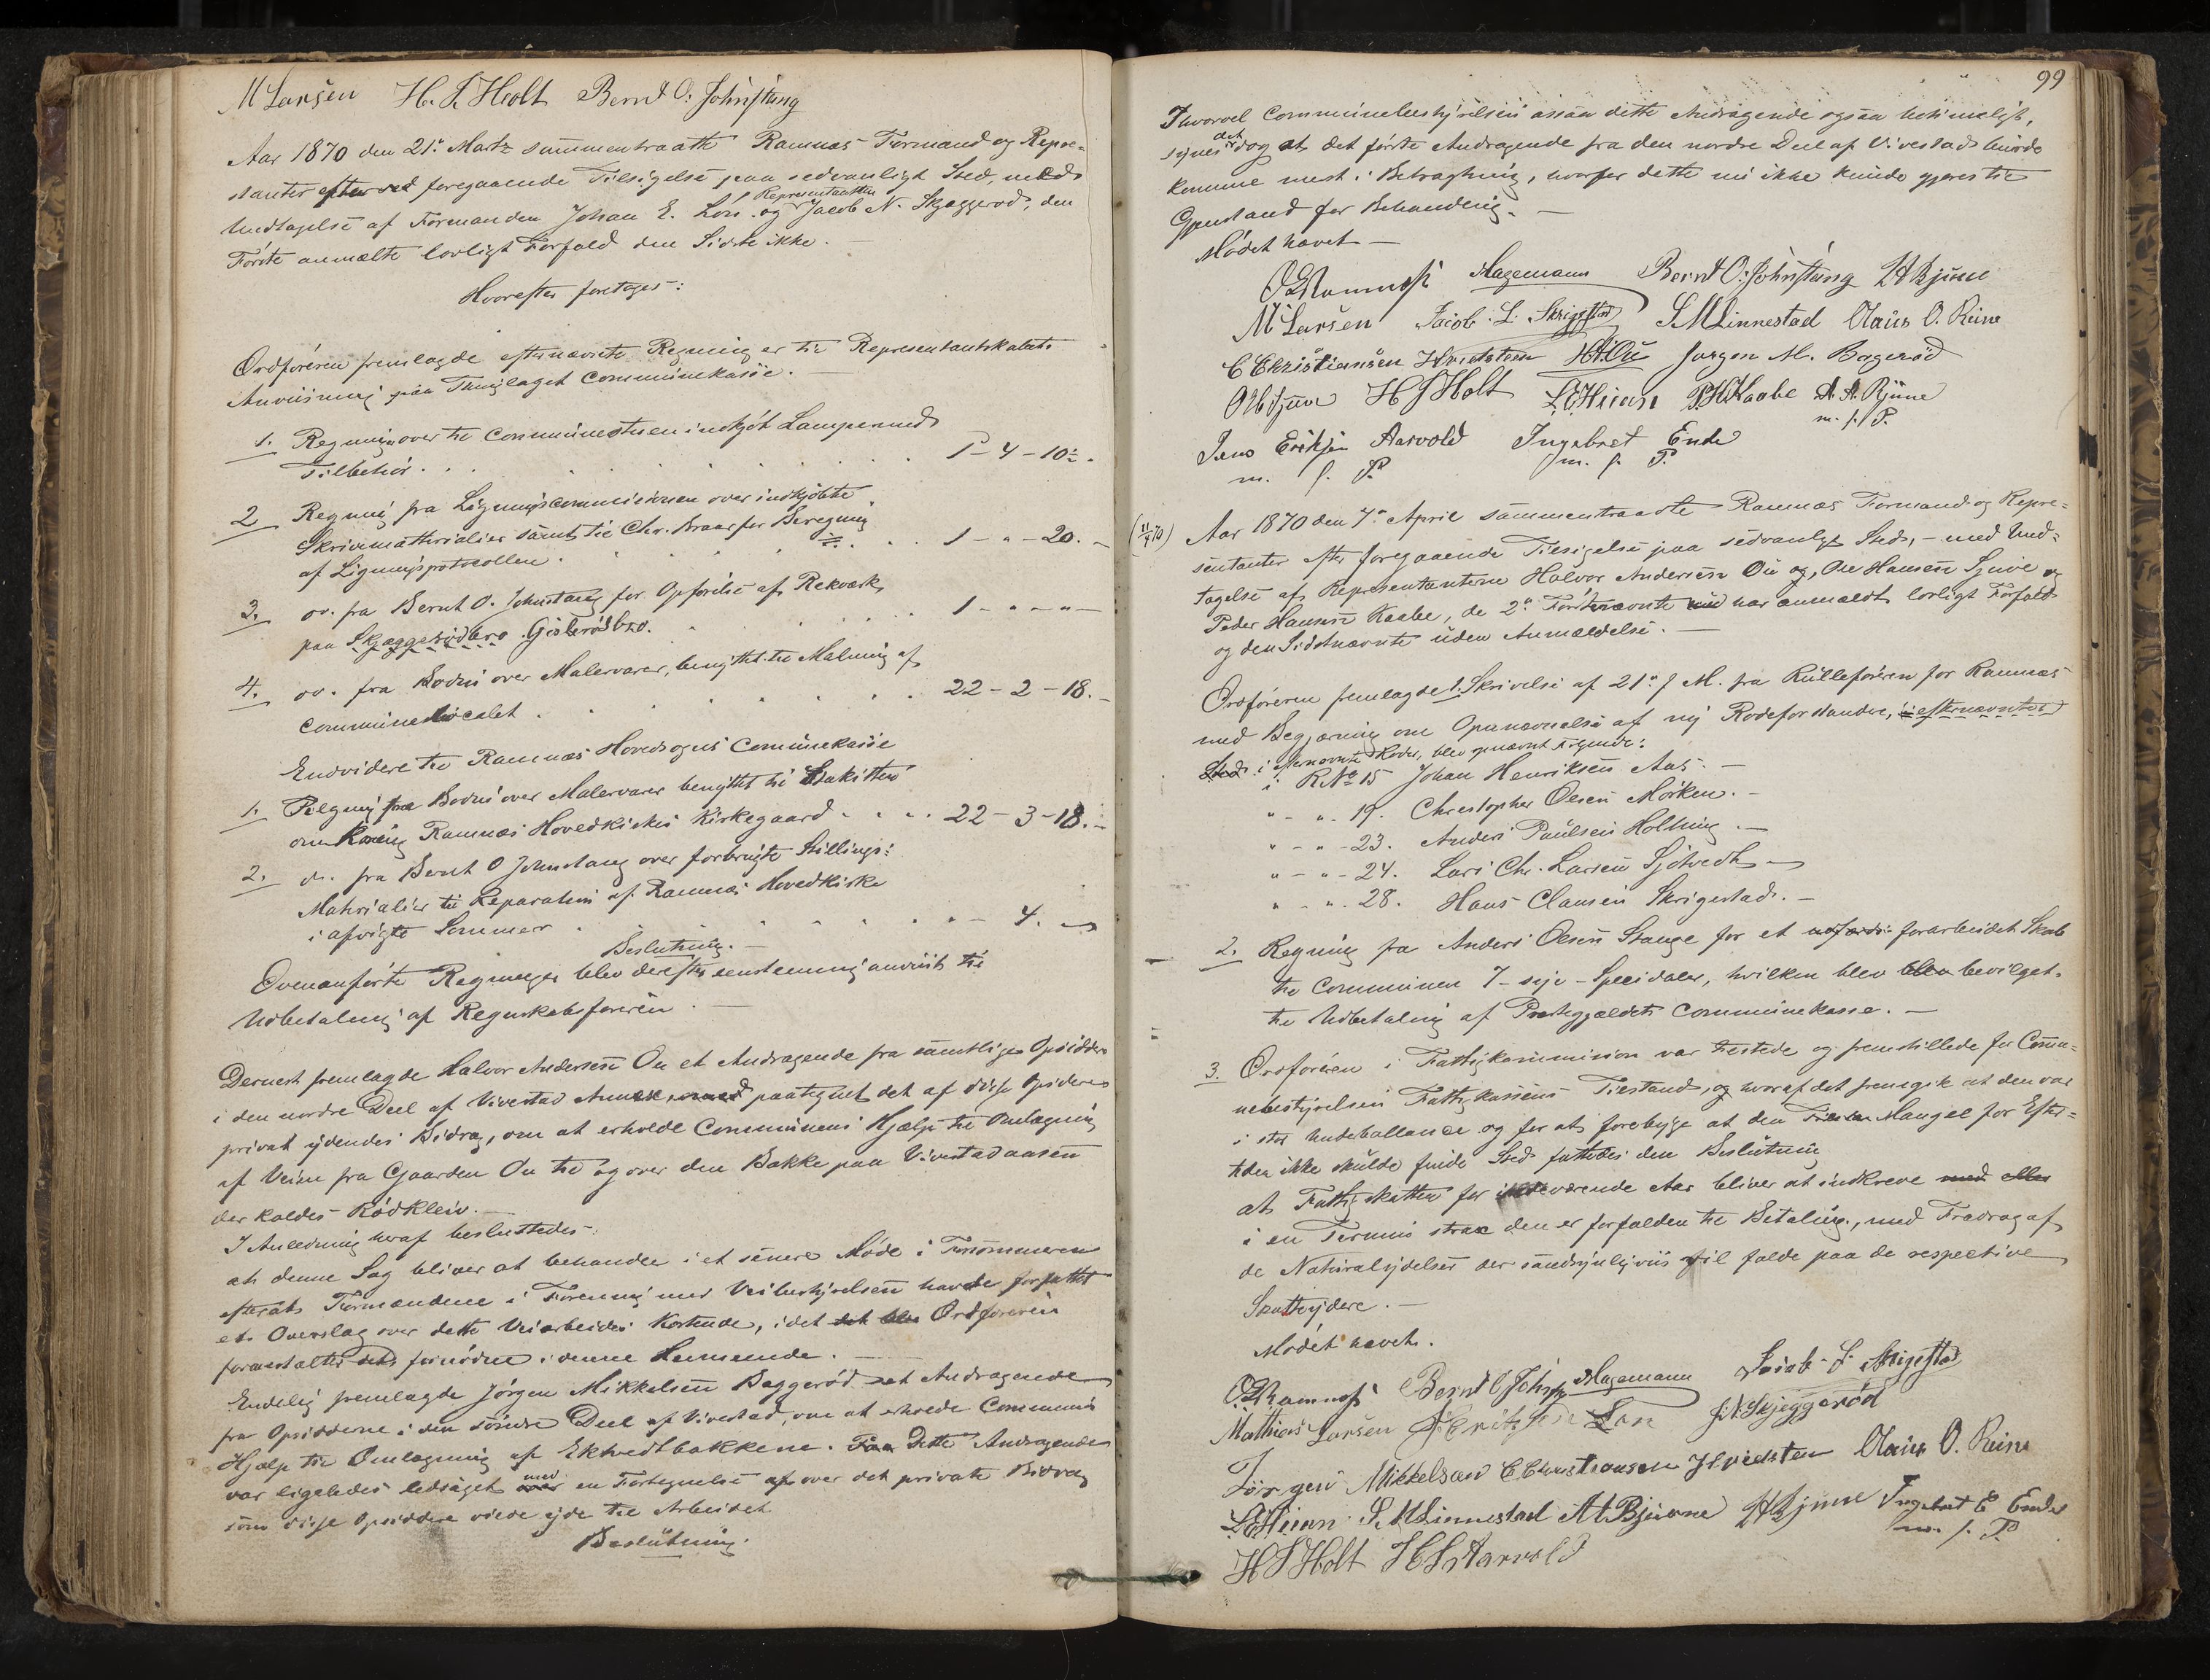 M Larsen H. S. Holt Bernt O: Johnstang
Aar 1870 den 21de Martz sammentraatte Ramnæs Formænd og Repre-
stanter efter ved foregaaende Tilsigelse paa sedvanligt Sted, med
Undtagelse af Formanden Johan E. Lön og Representanten Jacob N. Skjæggerød, den
Förste anmelte lovligt Forfald den Sidste ikke. —
Hvorefter foretoges:
Ordföreren fremlagde efternævnte Regninger til Representantskabets
Anviisning paa Thinglaget Communekasse. —
1. Regning over til Communestuen indkjöbt Lampe med
Tilbehör . . . 1 - 4 - 10.
2 Regning fra Ligningscommisionen over indkjöbte
Skrivematerialier samt til Chr. Braar for Beregning
af Ligningsprotocollen. 1 - " - 20. -
3. do. fra Bernt O. Johnstang for Opförelse af Rekværk
paa Skjæggerödbro Gislerödbro. 1 - " - " -
4. do. fra Bodin over Malervarer, benyttet til Malning af
Communelocalet . . . 22 - 2 - 18. -
Endvidere til Ramnæs Hovedsogns Communekasse
1. Regning fra Bodin over Malervarer benyttet til Stakittet
om Kring Ramnæs Hovedkirkes Kirkegaard . . . 22 - 3 - 18. -
2. do. fra Bernt O Johnstang over forbrugte Stillings:
Materialier til Reparation af Ramnæs Hovedkirke
i afvigte Sommer . . . " - 4. -
Beslutning. -
Ovenanförte Regninger blev derefter eenstemmig anviist til
Udbetaling af Regnskabsföreren . —
Dernest fremlagde Halvor Andersen Ou et Andragende fra samtlige Opsiddere
i den nordre Deel af Vivestad Annex, med paategnet det af disse Opsidderes
privat ydendes Bidrag, om at erholde Communens Hjælp til Omlægning
af Veien fra Gaarden Ou til og over den Bakke paa Vivestadaasen
der kaldes Rödkleiv. —
I Anledning heraf besluttedes:
at denne Sag bliver at behandle i et senere Möde i Forsommeren
efterat Formændene i Forening med Veibestyrelsen havde forfattet
et Overslag over dette Veiarbeides Kostende, idet det blev Ordföreren
foranstalter det fornödne i denne Henseende. —
Endelig fremlagde Jörgen Mikkelsen Baggeröd et Andragende
fra Opsidderne i den söndre Deel af Vivestad, om at erholde Communens
Hjælp til Omlægning af Ekhvedtbakkene. Paa Dette Andragende
var ligeledes ledsaget over med en Fortegnelse af over det private Bidrag
som disse Opsiddere vilde yde til Arbeidet
Beslutning.
99
Ihvorvel Communebestyrelsen ansaa dette Andragende ogsaa betimeligt,
synes det dog at det förste Andragende fra den nordre Deel af Vivestad burde
komme mest i Betragtning, hvorfor dette nu ikke kunde gjöres til
Gjenstand for Behandling. —
Mödet hævet —
O. Ramnæss Hagemann Bernt O: Johnstang H Bjune
M Larsen Jacob. L. Skrigestad S M Linnestad Claus O. Reine
C Christiansen Hvidsteen H A Ou Jørgen M. Bagerød
O H Sjuve H S Holt L E Hvaan P H Kaabe A A. Bjune
m. f. P.
Jens Eriksen Aarvold Ingebret Ende
m. f. P. m. f. P.
(11/4 70) Aar 1870 den 7de April sammentraadte Ramnæs Formænd og Repre-
sentanter efter foregaaende Tilsigelse paa sedvanligt Sted, - med Und-
tagelse af Representanterne Halvor Andersen Ou og, Ole Hansen Sjuve og
Peder Hansen Kaabe, de 2de Förstnævnte har anmeldt lovligt Forfald
og den Sidstnævnte uden Anmeldelse. —
Ordföreren fremlagde 1. Skrivelse af 21de f. M. fra Rulleföreren for Ramnæs
med Begjæring om Opnævnelse af ny Rodeforstandere, i efternævnte
Sted i efternævnte Roder, blev opnævnt Fölgende:
i R. No 15 Johan Henriksen Aas. —
" - " 19. Christopher Olesen Mörken. -
" - " 23. Anders Paulsen Holtung . —
" - " - 24. Lars Chr. Larsen Sjötvedt —
" - " 28. Hans Clausen Skrigestad. -
2. Regning fra Anders Olesen Stange for et udfærdi forarbeidet Skab
til Communen 7 - syv - Speidaler, hvilken blev blev bevilget
til Udbetaling af Prestegjældets Communekasse. —
3. Ordföreren i Fattigkommision var tilstede og fremstillede for Commu-
nebestyrelsen Fattigkassens Tilstand, og hvoraf det fremgik at den var
i stor Underballance og for at forebyge at den Mangel for Efter-
tiden ikke skulde finde Sted fattedes den Beslutning
at Fattigskatten for indeværende Aar bliver at indkreve med eller
i en Termin strax den er forfalden til Betaling, med Fradrag af
de Naturalydelser der sandsynligviis vil falde paa de respective
Skatteydere. —
Mödet hævet.
O. Ramnæss Bernt O Johnst Hagemann Jacob L. Skrigestad
Mathias Larsen Løn J N Skjeggerød
Jörgen Mikkelsen C Christiansen Hvidsten Claus O. Reine
L E Hvaan S. M Linnestad A A Bjune H Bjune Ingebret E Ende
m. f. P.
H S Holt H L Aarvold